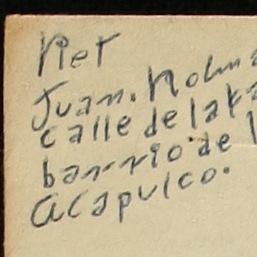 Ret
Juan. Rolm
calle de la
barrio de
Acapulco.